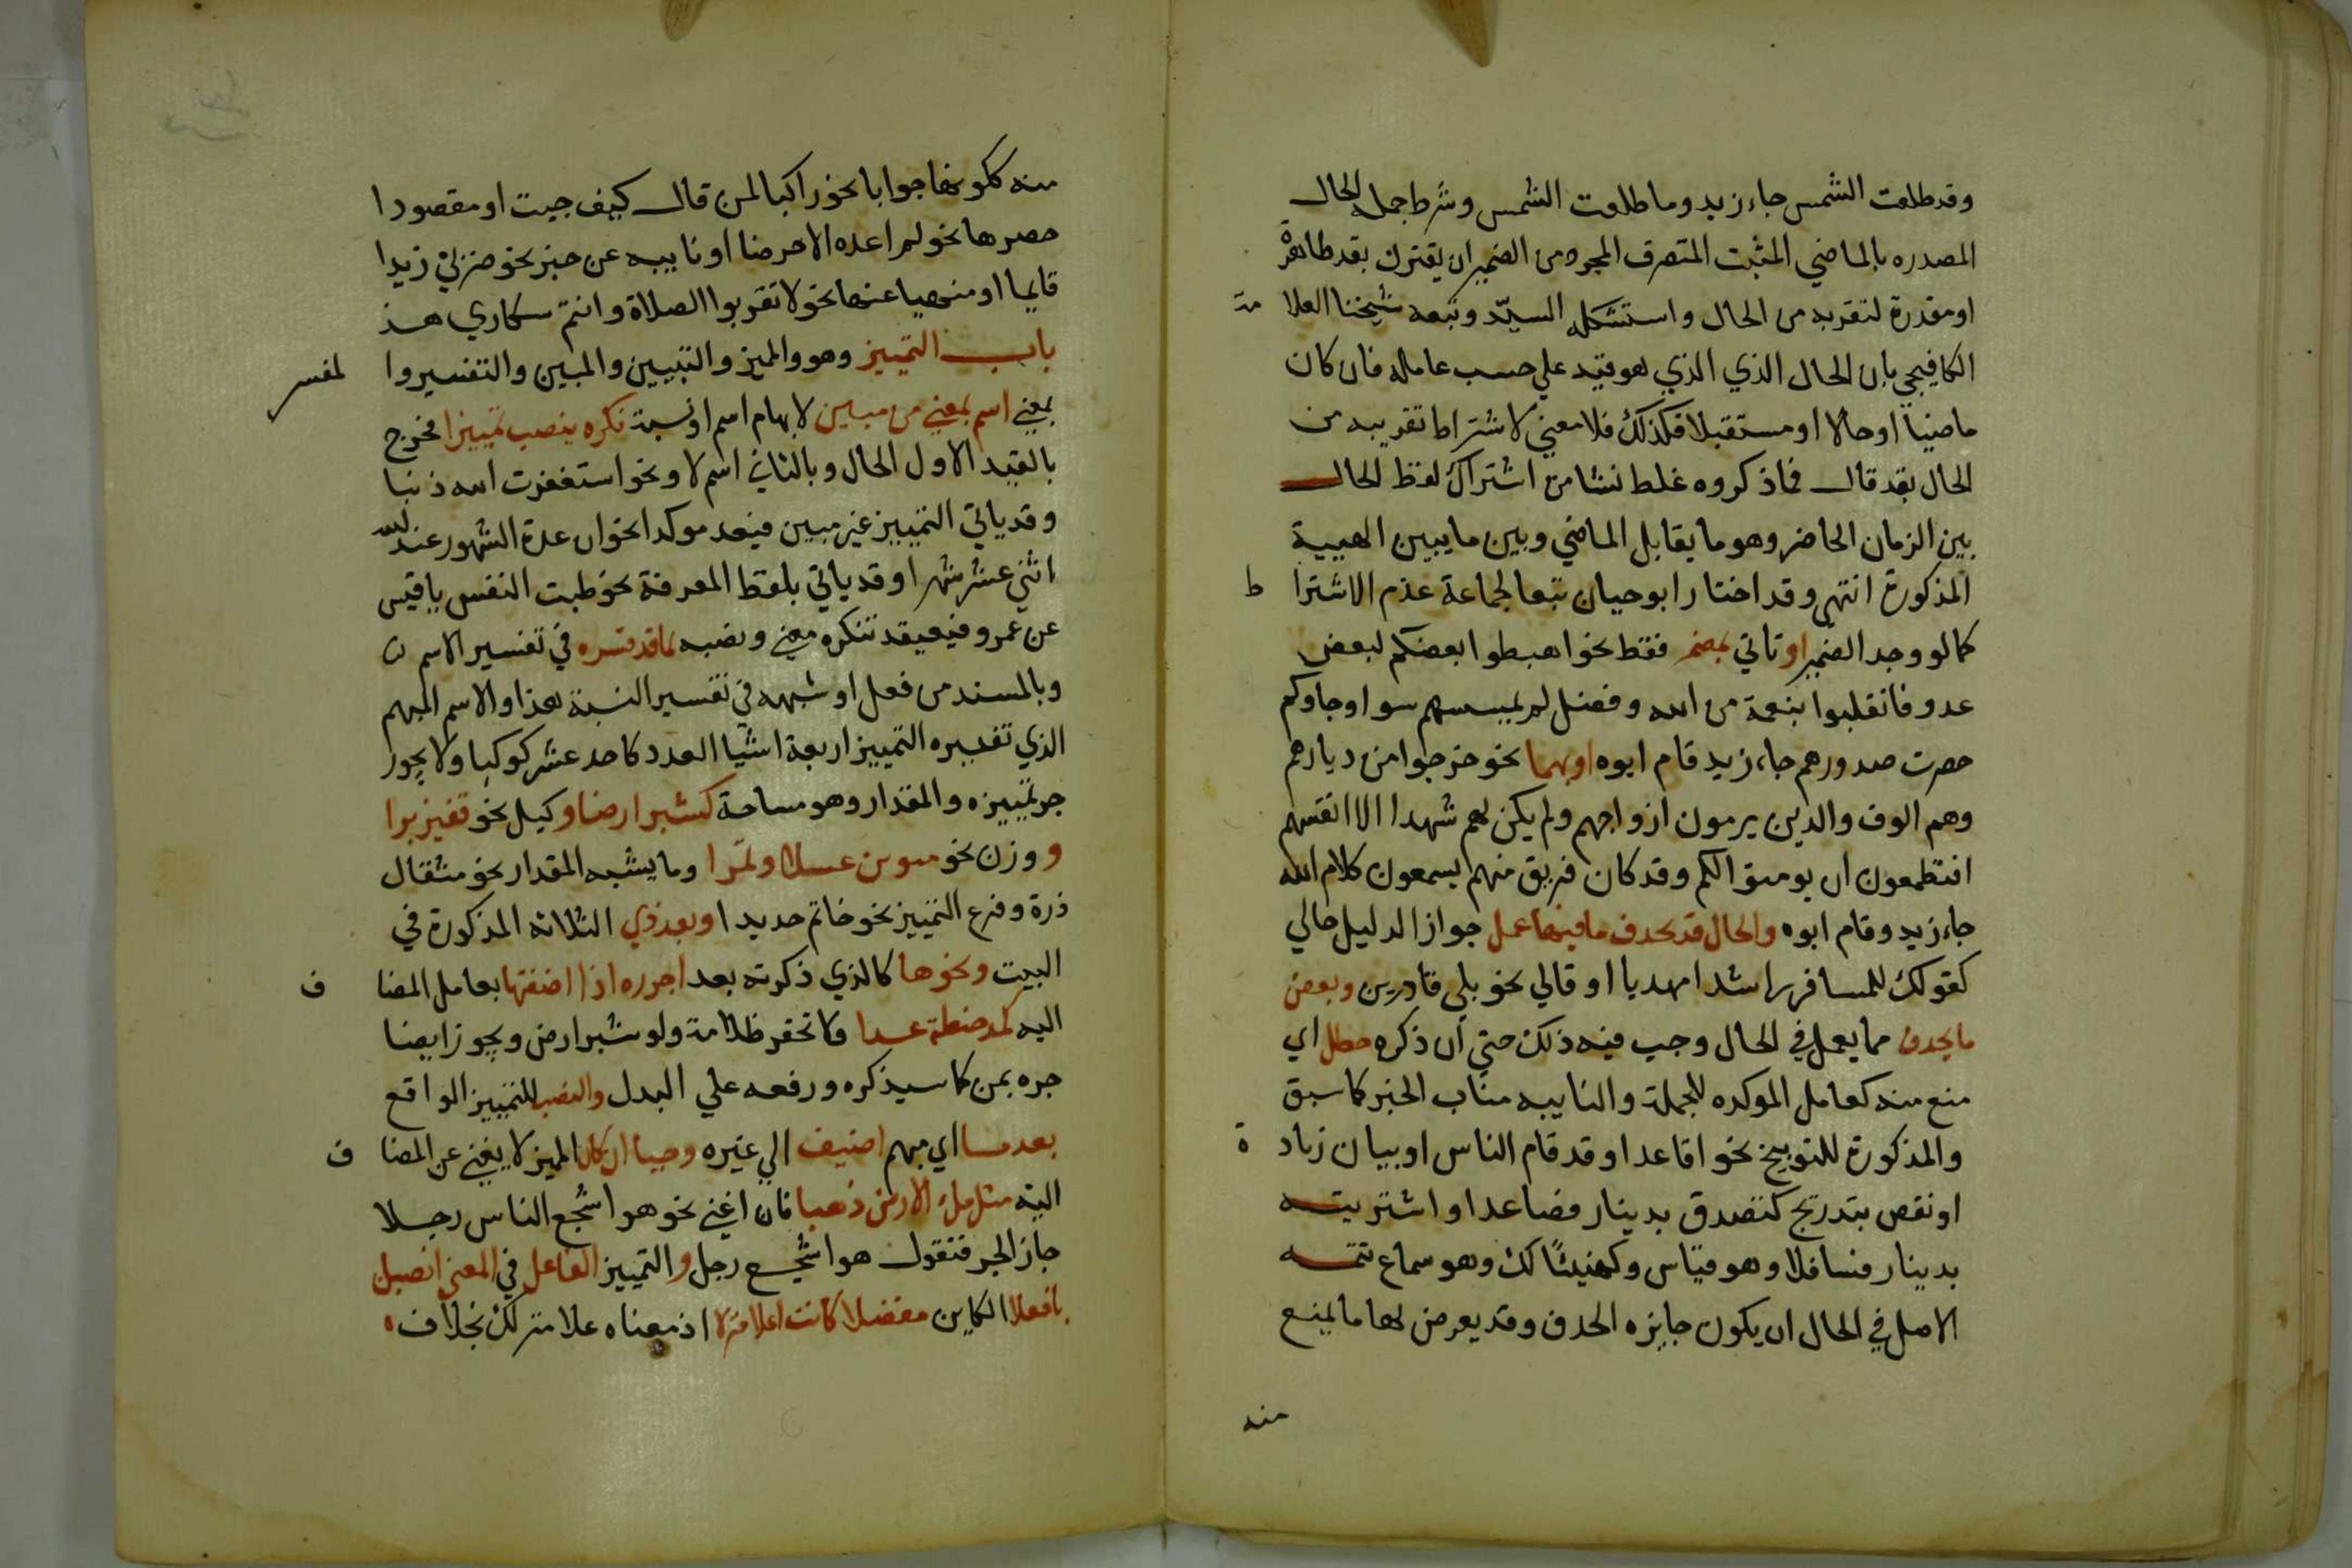 وقد طلعت الشمس جاء زيد وما طلعت الشمس وشرط جملة الحال
المصدره بالماضي المثبت المتصرف المجرد من الضمير ان يقترن بقد ظاهرة
او مقدرة لتقربه من الحال واستشكله السيّد وتبعه شيخنا العلا مة
الكافيجي بان الحال الذي الذي هو قيد علي حسب عامله فان كان
ماضياً او حالا او مستقبلا فكذلك فلا معني لاشتراط تقريبه من
الحال بقد قال فما ذكروه غلط نشا من اشتراك لفظ الحال
بين الزمان الحاضر وهو ما يقابل الماضي وبين ما يبين الهيية
المذكورة انتهي وقد اختار ابو حيان تبعا لجماعة عدم الاشترا ط
كما لو وجد الضمير او تاتي بمضمر فقط نحو اهبطوا بعضكم لبعض
عدو فانقلبوا بنعمة من الله وفضل لم يمسسهم سوا او جاوكم
حصرت صدورهم جاء زيد قام ابوه او بهما نحو خرجوا من ديارهم
وهم الوف والدين يرمون ازواجهم ولم يكن لهم شهدا الا انفسهم
افتطمعون ان يومنوا لكم وقد كان فريق منهم يسمعون كلام الله
جاء زيد وقام ابوه والحال قد يحدف ما فيها عمل جوازا لدليل حالي
كقولك للمسافر راشدا مهديا او قالي نحو بلي قادرين وبعض
ما يحدف مما يعمل في الحال وجب فيه ذلك حتي ان ذكره حظل اي
منع منه كعامل الموكده للجملة والناييبه مناب الخبر كما سبق
والمذكورة للتوبيخ نحو اقاعدا وقد قام الناس او بيان زياد ة
او نقص بتدريج كتصدق بدينار فصاعدا واشتريته
بدينار فسافلا وهو قياس وكهنيئًا لك وهو سماع تتمه
الاصل في الحال ان يكون جايزه الحدف وقد يعرض لها ما يمنع
منه
منه ككونها جوابا نحو راكبا لمن قال كيف جيت او مقصودا
حصرها نحو لم اعده الا حرضا او ناييبه عن خبر نحو ضربي زيدا
قايما او منهيا عنها نحو لا تقربوا الصلاة وانتم سكاري هذ
باب التمييز وهو والميز والتبيين والمبين والتفسير وا لمفسر
بمعني اسم بمعني من مبين لابهام اسم او نسبة نكره ينصب تمييزا فخرج
بالقيد الاول الحال وبالثاني اسم لا ونحو استغفرت الله ذنبا
وقد ياتي التمييز غير مبين فيعد موكدا نحو ان عدة الشهور عند الله
اثني عشر شهرا وقد ياتي بلفظ المعرفة نحو طبت النفس يا قيس
عن عمرو فيعتقد تنكره معني ونصبه بما قد فسره في تفسير الاسم
وبالمسند من فعل او شبهه في تفسير النسبة هذا والاسم المبهم
الذي تفسيره التمييز اربعة اشيا العدد كاحد عشر كوكبا ولا يجوز
جر تمييزه والمقدار وهو مساحة كشبر ارضا وكيل نحو قفيز برا
ووزن نحو منوين عسلا وتمرا وما يشبه المقدار نحو مثقال
ذرة وفرع التمييز نحو خاتم حديدا وبعد ذي الثلاثه المذكورة في
البيت ونحوها كالذي ذكرته بعد اجرره اذا اضفتها بعامل المضا ف
اليه كمد حنطة غدا ولا تحقر ظلامة ولو شبر ارض ويجوز ايضا
جره بمن كما سيذكره ورفعه علي البدل والنصب للتمييز الواقع
بعد ما اي مبهم اضيف الي غيره وجبا ان كان المميز لا يغني عن المضا ف
اليه مثل ملء الارض ذهبا فان اغني نحو هو اشجع الناس رجلا
جاز الجر فتقول هو اشجع رجل والتمييز الفاعل في المعني انصبن
بافعلا الكاين مفضلا كانت اعلا منزلا اذ معناه علا منزلك بخلاف